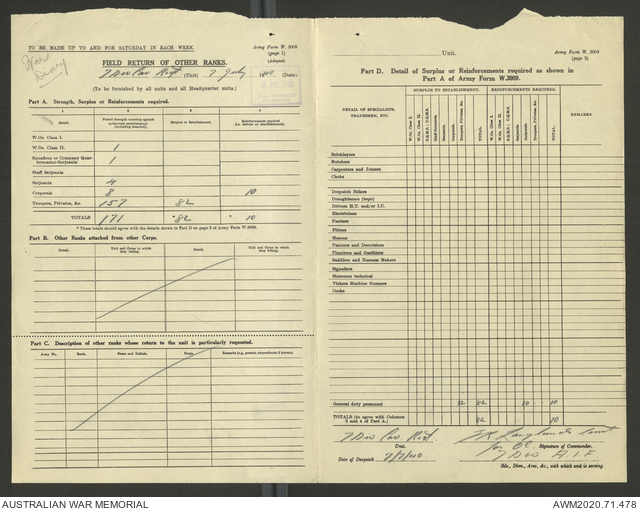 War
Diary
TO BE MADE UP TO AND FOR SATURDAY IN EACH WEEK.
Army Form W. 3009
(page 1)
(Adapted)
FIELD RETURN OF OTHER RANKS.
7 Div Cav Regt (Unit) 7 July 1940 (Date)
(To be furnished by all units and all Headquarter units.)
Part A. Strength, Surplus or Reinforcements required.
1 2 3 4
Detail. Posted strength counting against authorized establishment (excluding attached). Surplus to Establishment. Reinforcements required (i.e. deficits on establishment).
W.Os. Class I.
W.Os. Class II. 1
Squadron or Company Quartermaster-Serjeants 1
Staff Serjeants
Serjeants 4
Corporals 8 10
Troopers, Privates, &c. 157 82
TOTALS 171 *82 *10
* These totals should agree with the details shown in Part D on page 2 of Army Form W.3009.
Part B. Other Ranks attached from other Corps.
Detail. Unit and Corps to which they belong. Detail. Unit and Corps to which they belong.
Part C. Description of other ranks whose return to the unit is particularly requested.
Army No. Rank. Name and Initials. Corps. Remarks (e.g., present whereabouts if known).
Unit.
Army Form W. 3009
(page 2)
Part D. Detail of Surplus or Reinforcements required as shown in
Part A of Army Form W.3009.
DETAIL OF SPECIALISTS, TRADESMEN, ETC.
SURPLUS TO ESTABLISHMENT. REINFORCEMENTS REQUIRED.
W.Os. Class I. W.Os. Class II. S.Q.M.S.: C.Q.M.S. Staff Serjeants. Serjeants. Corporals. Troopers, Privates, &c. TOTAL
W.Os. Class I. W.Os. Class II. S.Q.M.S.: C.Q.M.S. Serjeants. Corporals. Troopers, Privates, &c. TOTAL
REMARKS
Bricklayers
Butchers
Carpenters and Joiners
Clerks
Despatch Riders
Draughtsmen (topo)
Drivers H.T. and/or I.C.
Electricians
Farriers
Fitters
Masons
Painters and Decorators
Plumbers and Gasfitters
Saddlers and Harness Makers
Signallers
Storemen technical
Vickers Machine Gunners
Cooks
General duty personnel 82 82 10 10
TOTALS (to agree with Columns 3 and 4 of Part A.) 82 10
7 Div Cav Regt
Unit.
for OC. Signature of Commander.
7 Div A.I.F.
Date of Despatch 7/7/40
Bde., Divn., Area, &c., with which unit is serving.
AUSTRALIAN WAR MEMORIAL
AWM2020.71.478